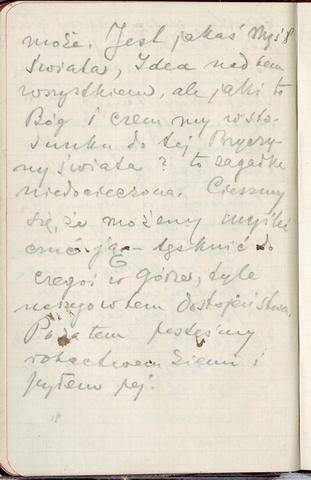 może. Jest jakaś Myśl
świata, Idea nad tem
wszystkiem, ale jaki to
Bóg i czem my w sto-
sunku do tej Przyczy-
ny świata? to zagadka
niedocieczona. Cieszmy
się, że możemy myśleć
czuć i tęsknić do
czegoś w górze, tyle
naszego w tem dostojeństwa.
Poza tem jesteśmy
robactwem ziemi i
pyłem jej.